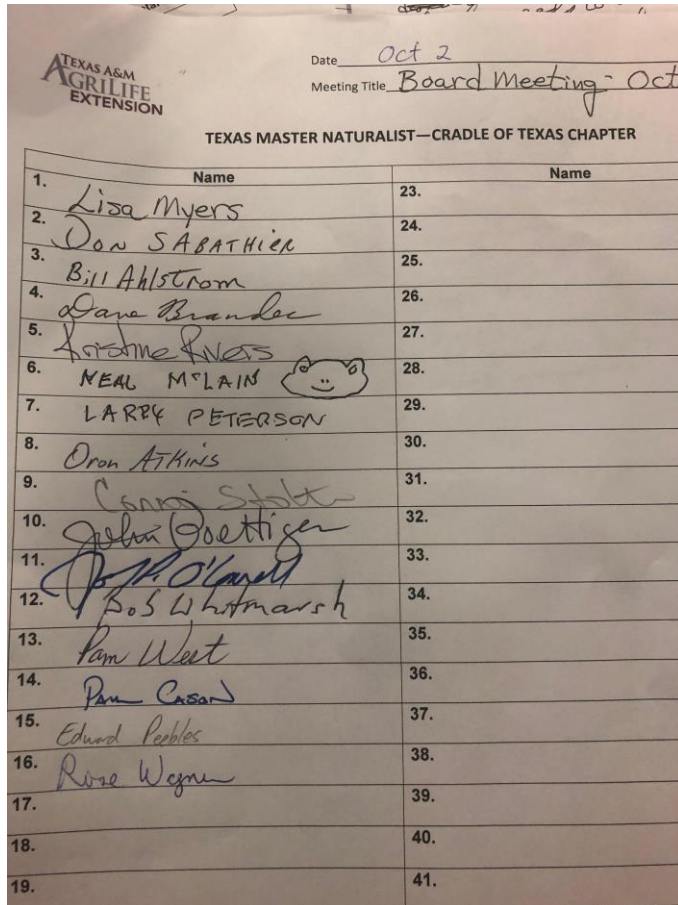 TEXAS A&M
AGRILIFE
EXTENSION
Date Oct 2
Meeting Title Board Meeting - Oct
TEXAS MASTER NATURALIST—CRADLE OF TEXAS CHAPTER
Name
Name
1. Lisa Myers
23.
2. Don SABATHIER
24.
3. Bill Ahlstrom
25.
4. Dave Brandes
26.
5. Kristine Rivers
27.
6. NEAL McLAIN
28.
7. LARRY PETERSON
29.
8. Oron ATKINS
30.
9. Connie Stolte
31.
10. John Boettiger
32.
11. P. O'Connell
33.
12. Bob Whitmarsh
34.
13. Pam West
35.
14. Pam Cason
36.
15. Edward Peebles
37.
16. Rose Wagner
38.
17.
39.
18.
40.
19.
41.